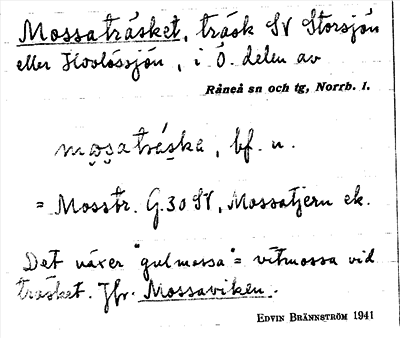 Mossaträsket, träsk SV Storsjön
eller Hovlössjön, i Ö. delen av
Råneå sn och tg, Norrb. l.
mo̯s̯atráska, bf. n.
= Mosstr. G.30 SV, Mossatjern ek.
Det växer "gulmossa" = vitmossa vid
träsket. Jfr. Mossaviken.
EDVIN BRÄNNSTRÖM 1941